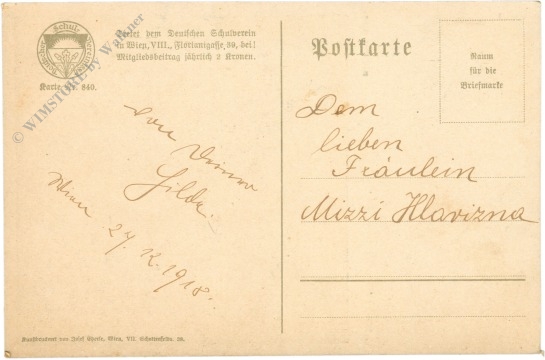 Deutscher Schul-Verein
Karte Nr. 840.
Tretet dem Deutschen Schulverein
in Wien, VIII., Florianigasse 39, bei!
Mitgliedsbeitrag jährlich 2 Kronen.
© WIMSTORE by Wallner
Von Deiner
Hilde.
Wien 27. X. 1918.
Postkarte
Raum
für die
Briefmarke
Dem
lieben
Fräulein
Mizzi Hlavizna
Kunstdruckerei von Josef Eberle, Wien, VII. Schottenfeldg. 38.